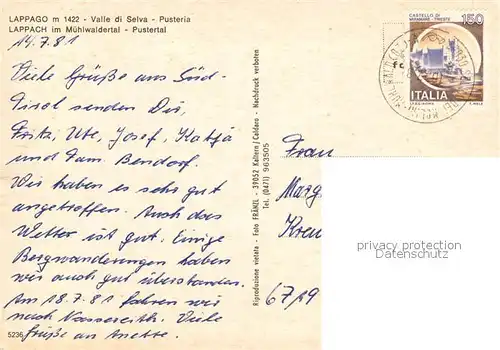 LAPPAGO m 1422 - Valle di Selva - Pusteria
LAPPACH im Mühlwaldertal - Pustertal
14.7.81
Viele Grüße aus Süd-
tirol senden Dir,
Fritz, Ute, Josef, Katja
und Fam. Bendorf.
Wir haben es sehr gut
angetroffen. Auch das
Wetter ist gut. Einige
Bergwanderungen haben
wir auch gut überstanden.
Am 18.7.81 fahren wir
nach Nassereith. Viele
Grüße an Anette.
5236
Riproduzione vietata - Foto FRÄNZL - 39052 Kaltern/Caldaro - Nachdruck verboten
Tel. (0471) 963505
CASTELLO DI
MIRAMARE - TRIESTE
150
ITALIA
Frau
Marg
Kreu
6719
privacy protection
Datenschutz